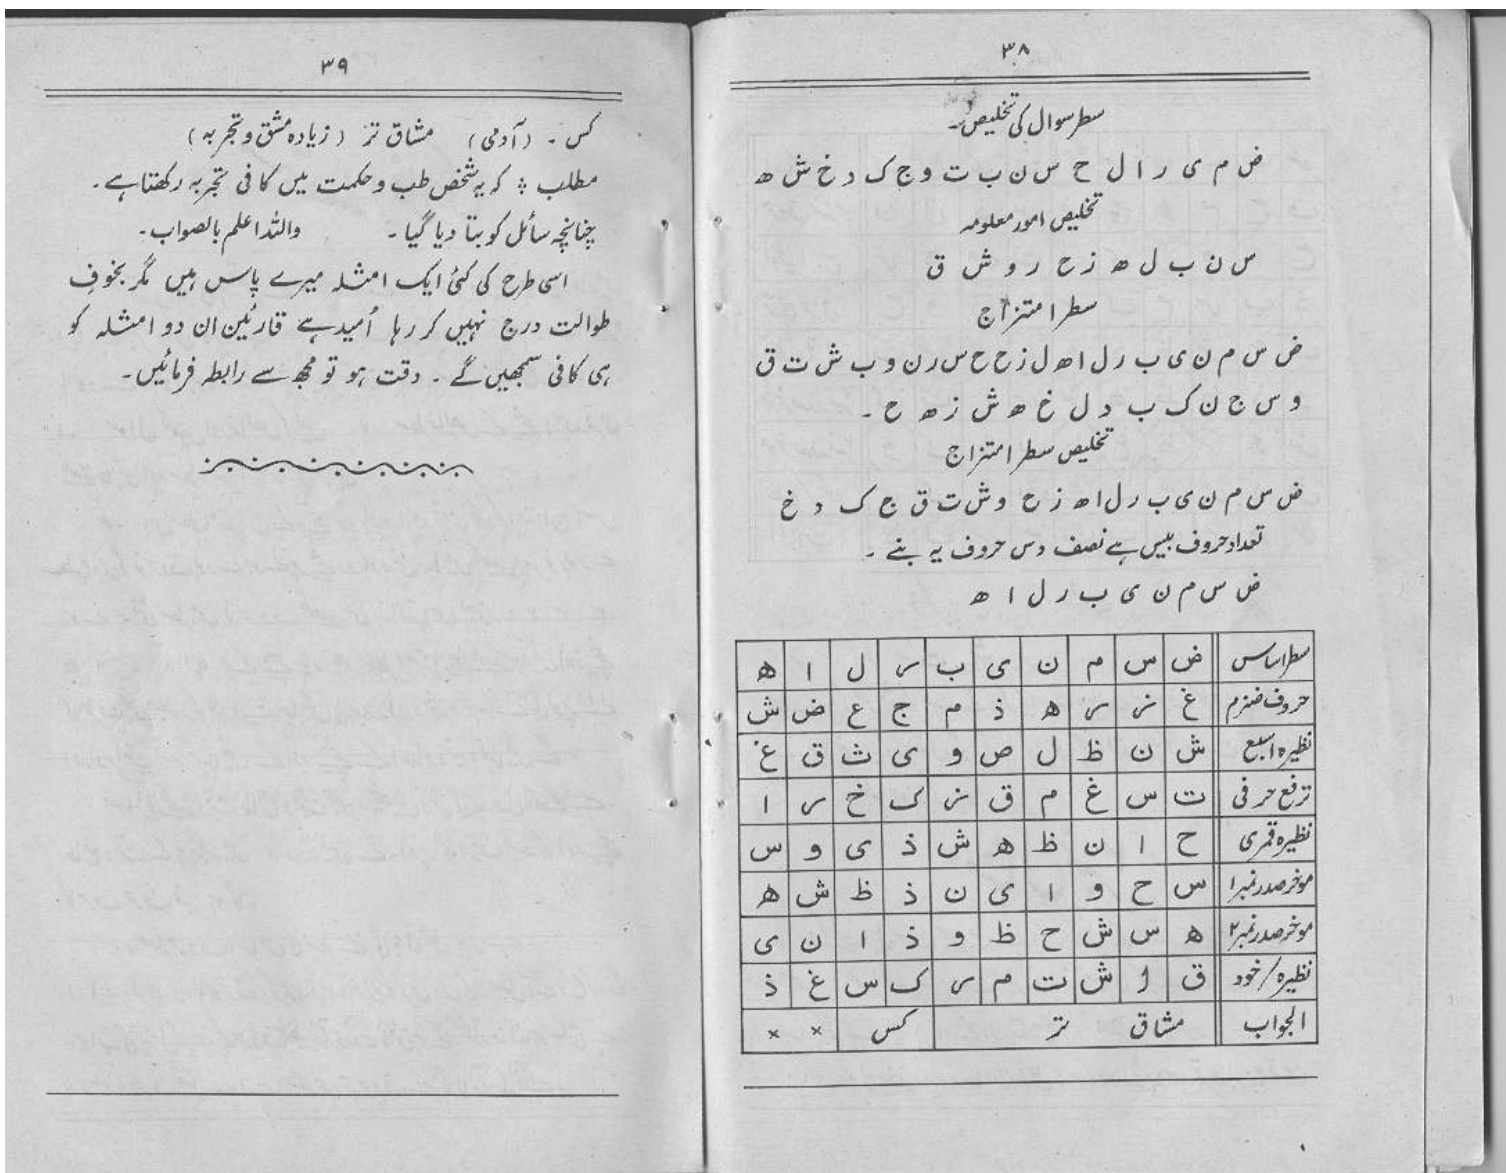 ۳۸
سطر سوال کی تخلیص۔
ض م ی ر ا ل ح س ن ب ت و ج ک د خ ش ھ
تخلیص امور معلومہ
س ن ب ل ھ ز ح ر و ش ق
سطر امتزاج
ض س م ن ی ب ر ل ا ھ ل ز ح ح س ر ن و ب ش ت ق
و س ج ن ک ب د ل خ ھ ش ز ھ ح ۔
تخلیص سطر امتزاج
ض س م ن ی ب ر ل ا ھ ز ح و ش ت ق ج ک د خ
تعداد حروف بیس ہے نصف دس حروف یہ بنے ۔
ض س م ن ی ب ر ل ا ھ
سطر اساس ض س م ن ی ب ر ل ا ھ
حروف ضزم غ ز ر ھ ذ م ج ع ض ش
نظیرہ اسبع ش ن ظ ل ص و ی ث ق غ
ترفع حرفی ت س غ م ق ز ک خ ر ا
نظیرہ قمری ح ا ن ظ ھ ش ذ ی و س
موخر صدر نمبر ۱ س ح و ا ی ن ذ ظ ش ھ
موخر صدر نمبر ۲ ھ س ش ح ظ و ذ ا ن ی
نظیرہ/خود ق ا ش ت م ر ک س غ ذ
الجواب مشاق تر کس × ×
۳۹
کس ۔ (آدمی) مشاق تر (زیادہ مشق و تجربہ)
مطلب : کہ یہ شخص طب و حکمت میں کافی تجربہ رکھتا ہے۔
چنانچہ سائل کو بتا دیا گیا ۔ واللہ اعلم بالصواب۔
اسی طرح کی کئی ایک امثلہ میرے پاس ہیں مگر بخوفِ
طوالت درج نہیں کر رہا اُمید ہے قارئین ان دو امثلہ کو
ہی کافی سمجھیں گے ۔ دقت ہو تو مجھ سے رابطہ فرمائیں۔